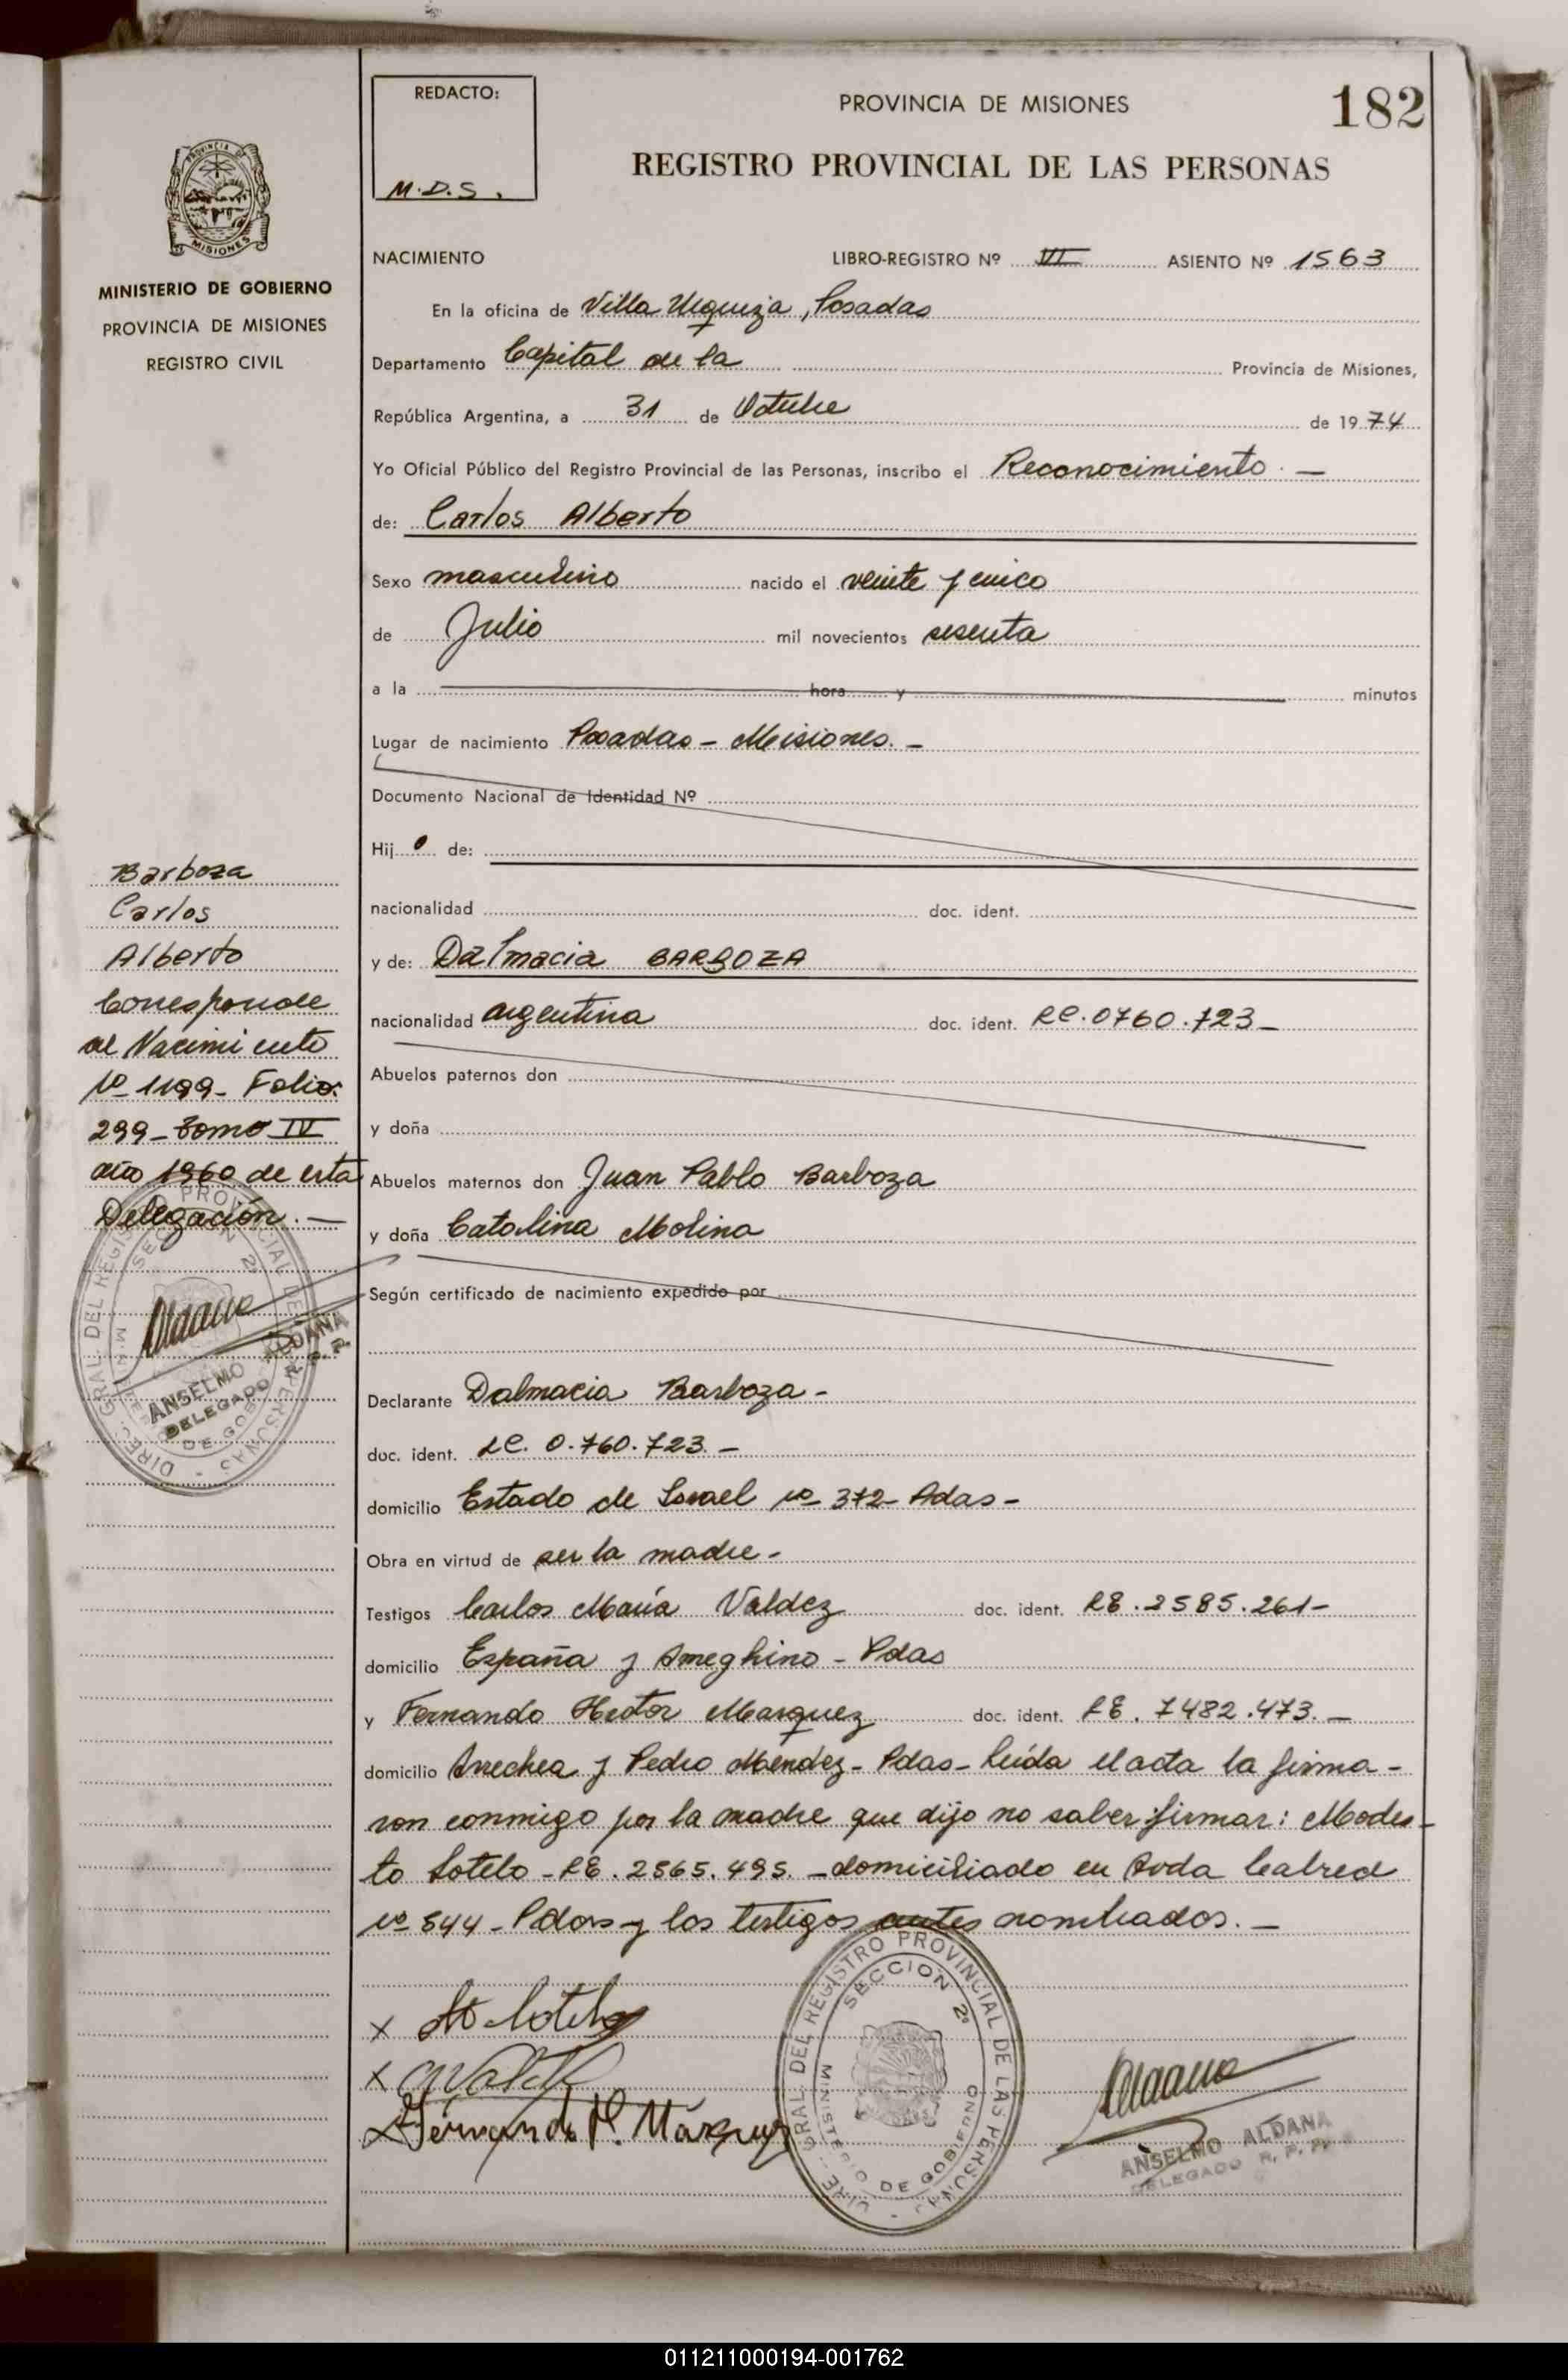 REDACTO:
M.D.S.
PROVINCIA DE MISIONES
182
REGISTRO PROVINCIAL DE LAS PERSONAS
PROVINCIA DE
MISIONES
MINISTERIO DE GOBIERNO
PROVINCIA DE MISIONES
REGISTRO CIVIL
NACIMIENTO LIBRO-REGISTRO Nº VI ASIENTO Nº 1563
En la oficina de Villa Urquiza, Posadas
Departamento Capital de la Provincia de Misiones,
República Argentina, a 31 de Octubre de 1974
Yo Oficial Público del Registro Provincial de las Personas, inscribo el Reconocimiento. —
de: Carlos Alberto
Sexo masculino nacido el veinte y cinco
de Julio mil novecientos sesenta
a la hora y minutos
Lugar de nacimiento Posadas - Misiones. -
Documento Nacional de Identidad Nº
Hij o de:
nacionalidad doc. ident.
y de: Dalmacia BARBOZA
nacionalidad argentina doc. ident. LC. 0760.723 -
Abuelos paternos don
y doña
Abuelos maternos don Juan Pablo Barboza
y doña Catalina Molina
Según certificado de nacimiento expedido por
Declarante Dalmacia Barboza -
doc. ident. LC. 0.760.723. -
domicilio Estado de Israel nº 372 - Pdas -
Obra en virtud de ser la madre -
Testigos Carlos María Valdez doc. ident. LE. 2585.261 -
domicilio España y Ameghino - Pdas
y Fernando Hector Marquez doc. ident. LE. 7482.473. —
domicilio Anechea y Pedro Mendez - Pdas - Leída el acta la firma-
ron conmigo por la madre que dijo no saber firmar: Modes-
to Sotelo - LE. 2565.495. - domiciliado en Avda Cabred
nº 544 - Pdas y los testigos antes nombrados. —
Barboza
Carlos
Alberto
Corresponde
al Nacimiento
Nº 1199 - Folio:
299 - Tomo IV
año 1960 de esta
Delegación. —
DIREC. GRAL. DEL REGISTRO PROVINCIAL DE LAS PERSONAS
SECCION 2ª
MINISTERIO DE GOBIERNO
ANSELMO ALDANA
DELEGADO R. P. P.
x M Sotelo
x CMValdez
x Fernando H. Márquez
DIREC. GRAL. DEL REGISTRO PROVINCIAL DE LAS PERSONAS
SECCION 2ª
MINISTERIO DE GOBIERNO
Aldana
ANSELMO ALDANA
DELEGADO R. P. P.
011211000194-001762